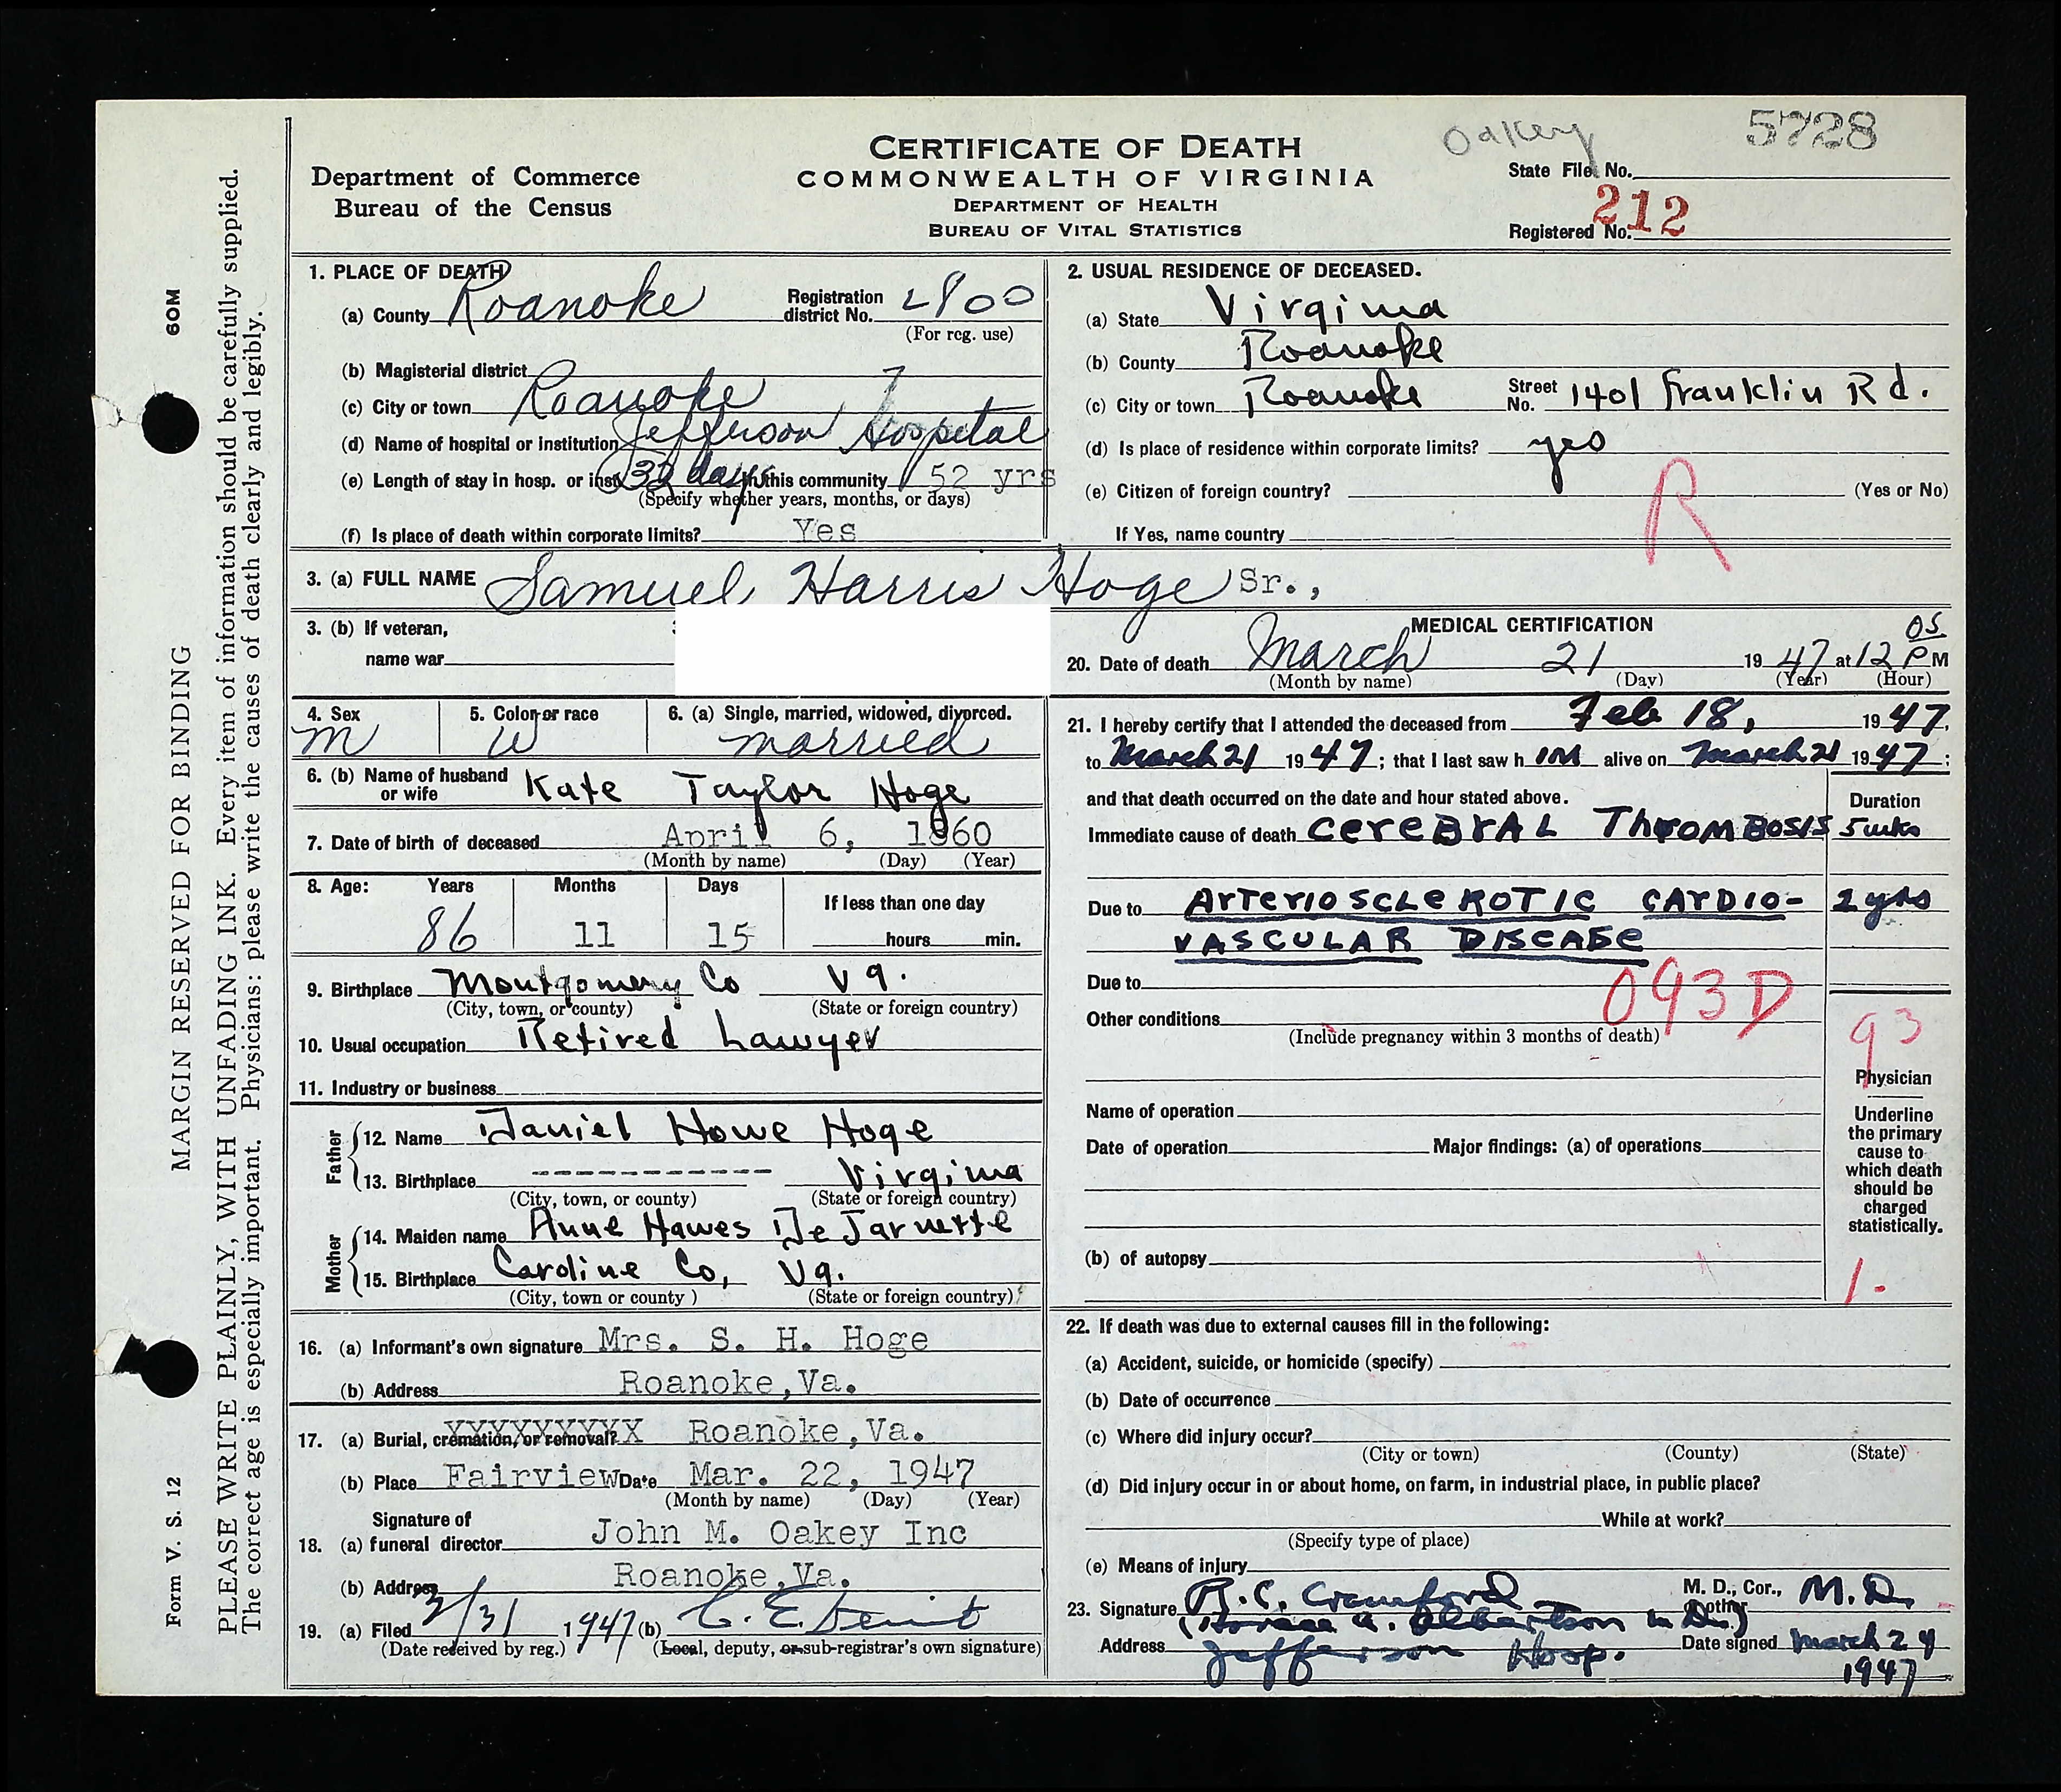 Oakey 5728
CERTIFICATE OF DEATH
COMMONWEALTH OF VIRGINIA
DEPARTMENT OF HEALTH
BUREAU OF VITAL STATISTICS
Department of Commerce
Bureau of the Census
State File No.
Registered No. 212
MARGIN RESERVED FOR BINDING 60M
PLEASE WRITE PLAINLY, WITH UNFADING INK. Every item of information should be carefully supplied.
The correct age is especially important. Physicians: please write the causes of death clearly and legibly.
Form V. S. 12
1. PLACE OF DEATH
(a) County Roanoke Registration district No. 2800
(For reg. use)
(b) Magisterial district
(c) City or town Roanoke
(d) Name of hospital or institution Jefferson Hospital
(e) Length of stay in hosp. or inst. 32 days In this community 52 yrs
(Specify whether years, months, or days)
(f) Is place of death within corporate limits? Yes
2. USUAL RESIDENCE OF DECEASED.
(a) State Virginia
(b) County Roanoke
(c) City or town Roanoke Street No. 1401 Franklin Rd.
(d) Is place of residence within corporate limits? yes
(e) Citizen of foreign country? (Yes or No)
If Yes, name country
R
3. (a) FULL NAME Samuel Harris Hoge Sr.,
3. (b) If veteran,
name war
4. Sex M
5. Color or race W
6. (a) Single, married, widowed, divorced. married
6. (b) Name of husband or wife Kate Taylor Hoge
7. Date of birth of deceased April 6, 1860
(Month by name) (Day) (Year)
8. Age: Years Months Days If less than one day
86 11 15 hours min.
9. Birthplace Montgomery Co Va.
(City, town, or county) (State or foreign country)
10. Usual occupation Retired Lawyer
11. Industry or business
Father
12. Name Daniel Howe Hoge
13. Birthplace ------------ Virginia
(City, town, or county) (State or foreign country)
Mother
14. Maiden name Anne Hawes De Jarnette
15. Birthplace Caroline Co, Va.
(City, town or county ) (State or foreign country)
16. (a) Informant's own signature Mrs. S. H. Hoge
(b) Address Roanoke,Va.
17. (a) Burial, cremation, or removal? XXXXXXXXX Roanoke,Va.
(b) Place Fairview Date Mar. 22, 1947
(Month by name) (Day) (Year)
Signature of
18. (a) funeral director John M. Oakey Inc
(b) Address Roanoke,Va.
19. (a) Filed 3/31 1947 (b) C. E.
(Date received by reg.) (Local, deputy, or sub-registrar's own signature)
MEDICAL CERTIFICATION
20. Date of death March 21 1947 at 12 05 P M
(Month by name) (Day) (Year) (Hour)
21. I hereby certify that I attended the deceased from Feb 18, 1947,
to March 21 1947; that I last saw h im alive on March 21 1947;
and that death occurred on the date and hour stated above. Duration
Immediate cause of death CEREBRAL THROMBOSIS 5 wks
Due to ARTERIOSCLEROTIC CARDIO- 2 yrs
VASCULAR DISEASE
Due to
093D
Other conditions
(Include pregnancy within 3 months of death)
93
Physician
Underline the primary cause to which death should be charged statistically.
1.
Name of operation
Date of operation Major findings: (a) of operations
(b) of autopsy
22. If death was due to external causes fill in the following:
(a) Accident, suicide, or homicide (specify)
(b) Date of occurrence
(c) Where did injury occur?
(City or town) (County) (State)
(d) Did injury occur in or about home, on farm, in industrial place, in public place?
While at work?
(Specify type of place)
(e) Means of injury
23. Signature R. C. Crawford M. D., Cor., or other M.D.
(Horace A. Albertson M D.)
Address Jefferson Hosp. Date signed March 24
1947